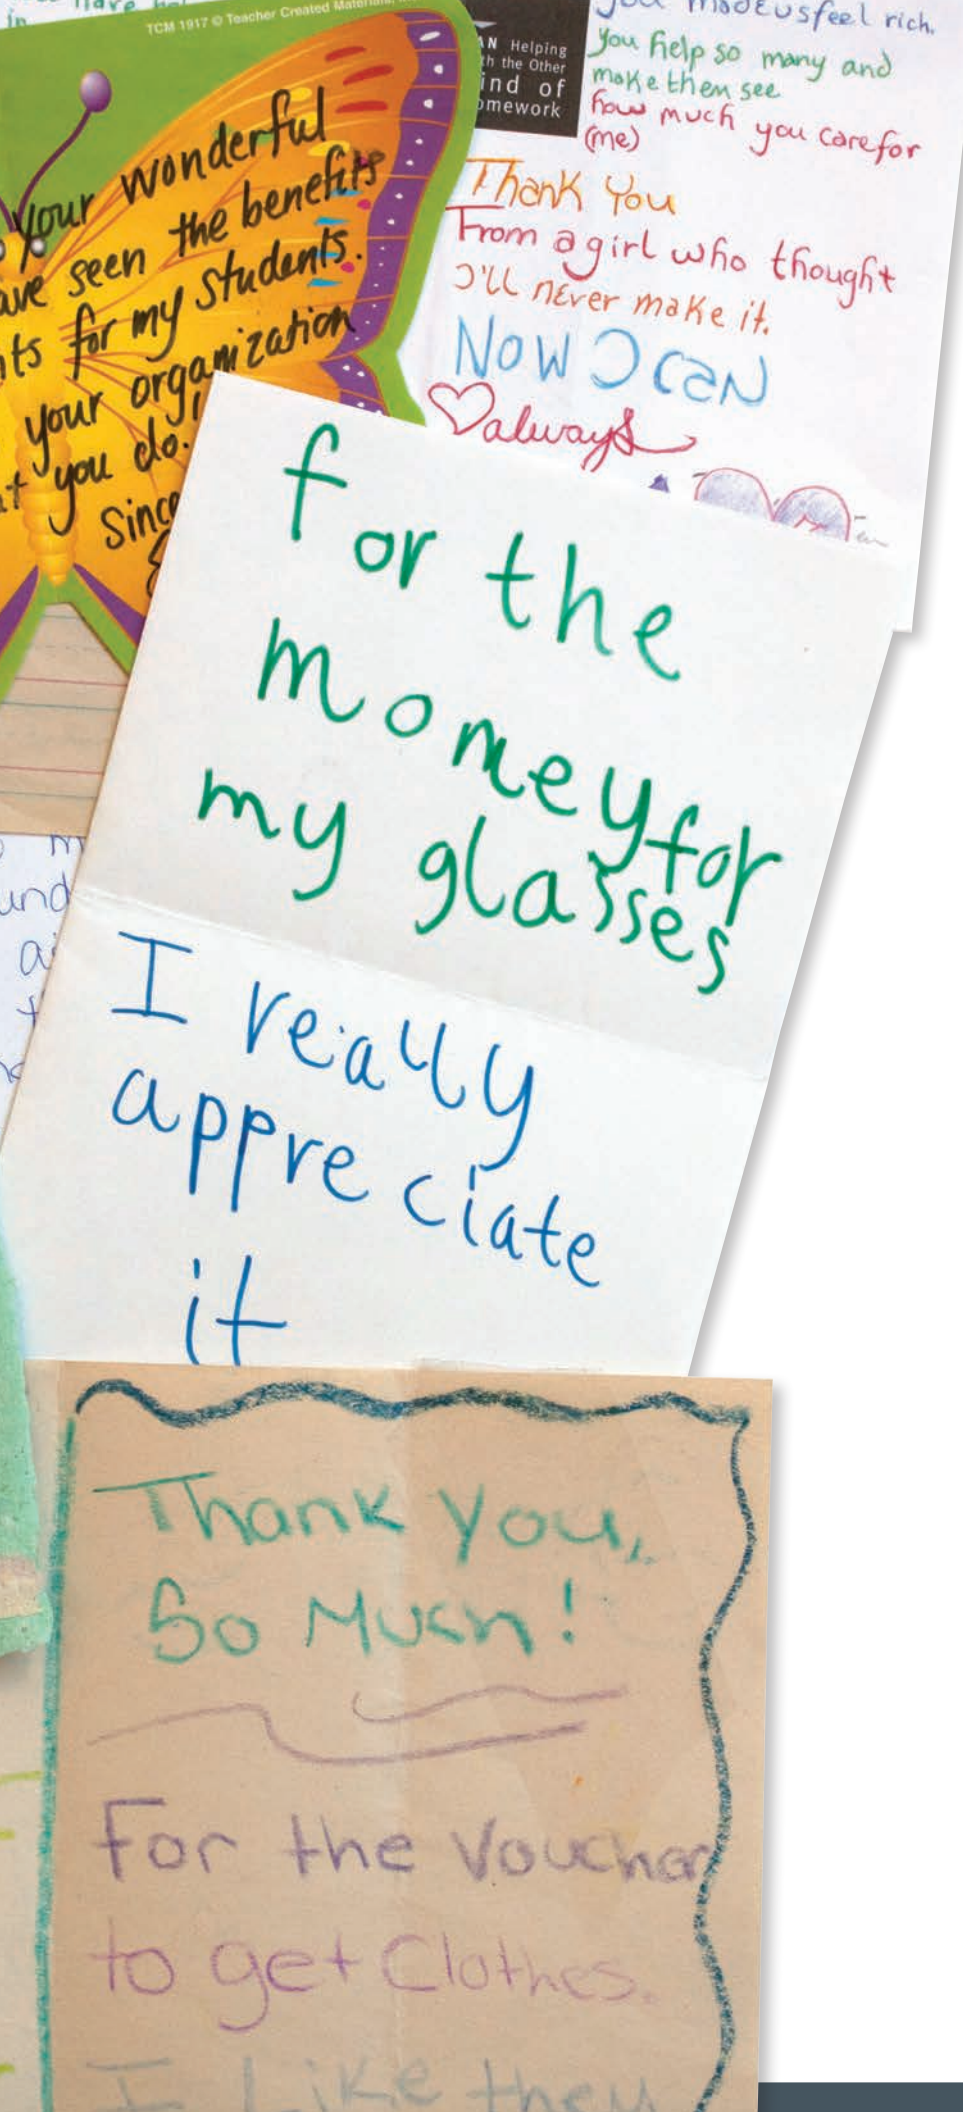 in
have
TCM 1917 © Teacher Created Materials,
your wonderful
seen the benefits
for my students.
your organization
you do.
you made us feel rich.
you help so many and
make them see
how much you care for
(me)
Helping
the Other
of
Thank You
From a girl who thought
I'll never make it.
Now I can
always
for the
momey for
my glasses
I really
appreciate
it
Thank you,
So Much!
For the Voucher
to get Clothes.
I Like they